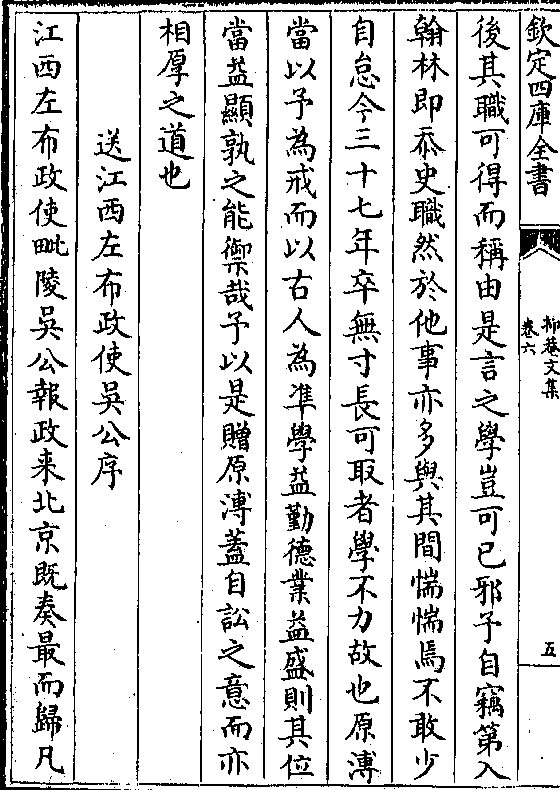 欽定四庫全書
抑菴文集
卷六
五
後其職可得而稱由是言之學豈可已邪予自竊第入
翰林即忝史職然於他事亦多與其間惴惴焉不敢少
自怠今三十七年卒無寸長可取者學不力故也原溥
當以予為戒而以古人為準學益勤德業益盛則其位
當益顯孰之能禦哉予以是贈原溥蓋自訟之意而亦
相厚之道也
送江西左布政使吳公序
江西左布政使毗陵吳公報政来北京既奏最而歸凡